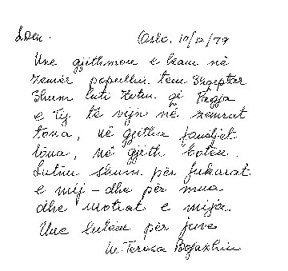 LDM. Oslo. 10/12/79
Une gjithmon e kam në
zemër popullin tem Shqiptar
Shum luti Zotin qi Paqja
e Tij të vijn në zemrat
tona, në gjitha familjet
tona, në gjith botën.
Lutëm shum për fukarat
e mij - dhe për mua
dhe motrat e mija.
Une lutëm për juve
M. Teresa Bojaxhiu